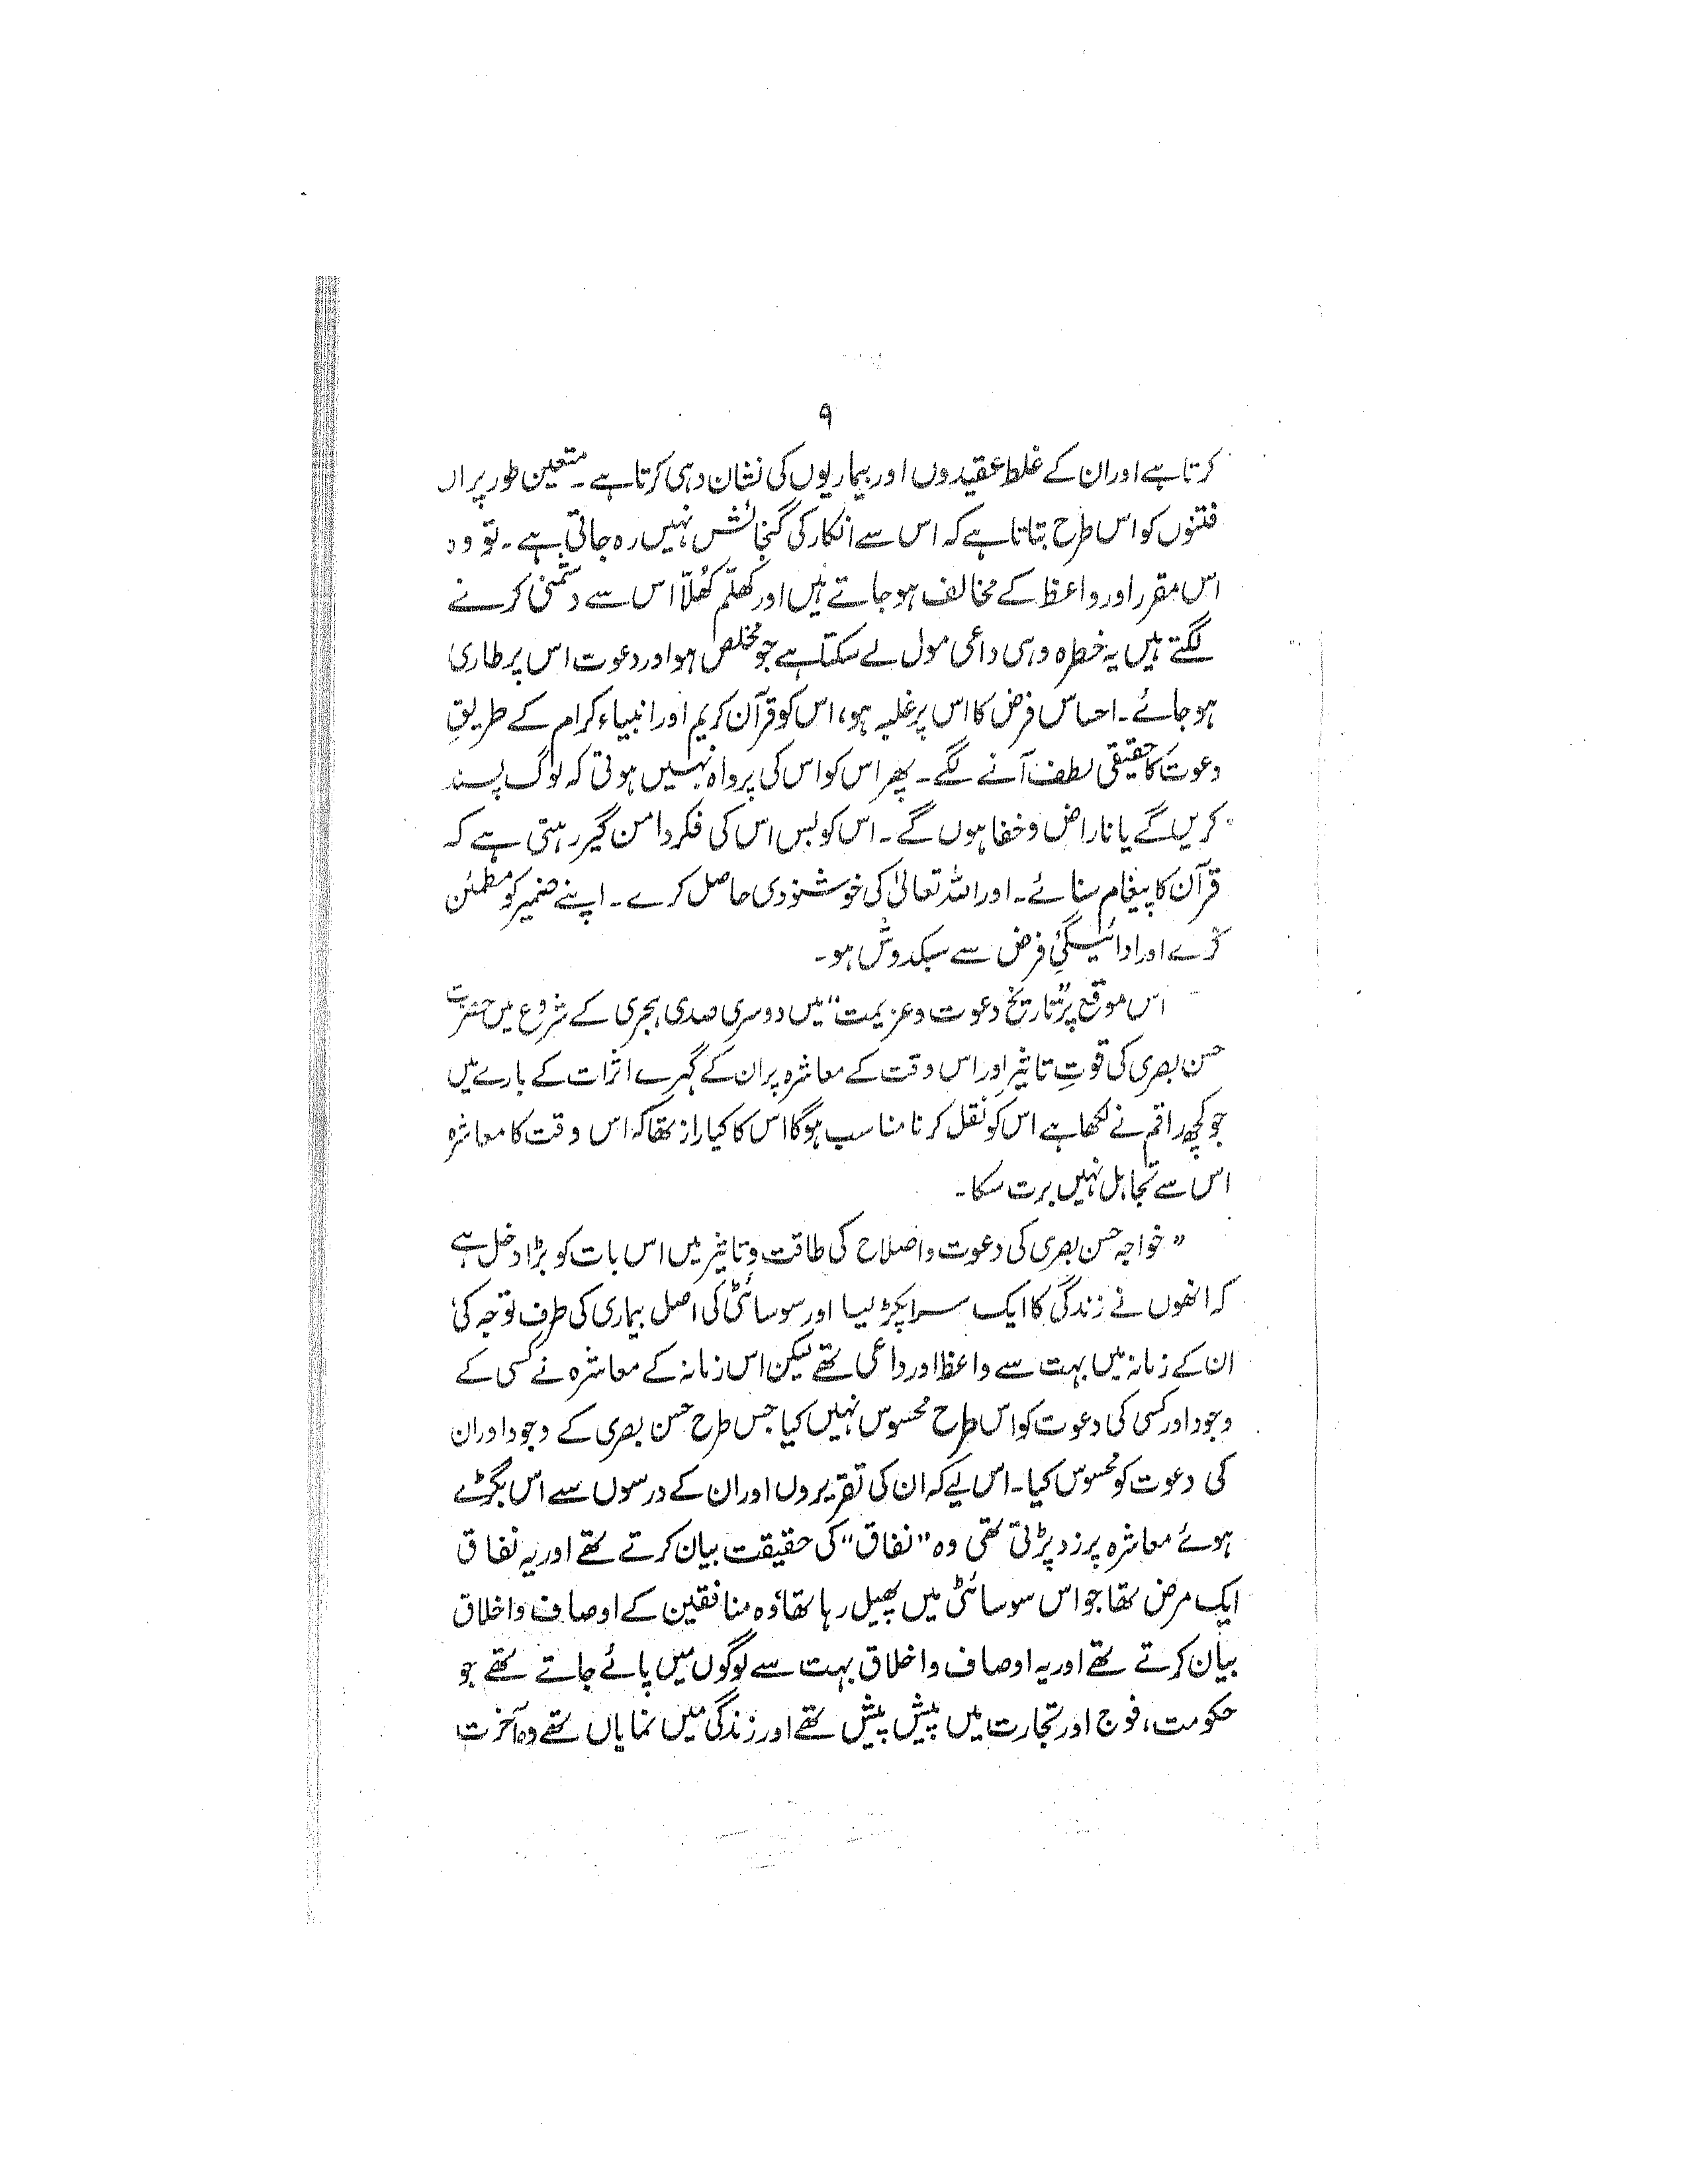 ۹
کرتا ہے اور ان کے غلط عقیدوں اور بیماریوں کی نشان دہی کرتا ہے۔ متعین طور پر ان
فتنوں کو اس طرح بتاتا ہے کہ اس سے انکار کی گنجائش نہیں رہ جاتی ہے۔ تو وہ
اس مقرر اور واعظ کے مخالف ہو جاتے ہیں اور کھلّم کھُلّا اس سے دشمنی کرنے
لگتے ہیں یہ خطرہ وہی داعی مول لے سکتا ہے جو مخلص ہو اور دعوت اس پر طاری
ہو جائے۔ احساس فرض کا اس پر غلبہ ہو، اس کو قرآن کریم اور انبیاء کرام کے طریقِ
دعوت کا حقیقی لطف آنے لگے۔ پھر اس کو اس کی پرواہ نہیں ہوتی کہ لوگ پسند
کریں گے یا ناراض و خفا ہوں گے۔ اس کو بس اس کی فکر دامن گیر رہتی ہے کہ
قرآن کا پیغام سنائے۔ اور اللہ تعالیٰ کی خوشنودی حاصل کرے۔ اپنے ضمیر کو مطمئن
کرے اور ادائیگیِ فرض سے سبکدوش ہو۔
اس موقع پر "تاریخ دعوت و عزیمت" میں دوسری صدی ہجری کے شروع میں حضرت
حسن بصری کی قوتِ تاثیر اور اس وقت کے معاشرہ پر ان کے گہرے اثرات کے بارے میں
جو کچھ راقم نے لکھا ہے اس کو نقل کرنا مناسب ہوگا اس کا کیا راز تھا کہ اس وقت کا معاشرہ
اس سے تجاہل نہیں برت سکا۔
"خواجہ حسن بصری کی دعوت و اصلاح کی طاقت و تاثیر میں اس بات کو بڑا دخل ہے
کہ انھوں نے زندگی کا ایک سرا پکڑ لیا اور سوسائٹی کی اصل بیماری کی طرف توجہ کی
ان کے زمانہ میں بہت سے واعظ اور داعی تھے لیکن اس زمانہ کے معاشرہ نے کسی کے
وجود اور کسی کی دعوت کو اس طرح محسوس نہیں کیا جس طرح حسن بصری کے وجود اور ان
کی دعوت کو محسوس کیا۔ اس لیے کہ ان کی تقریروں اور ان کے درسوں سے اس بگڑے
ہوئے معاشرہ پر زد پڑتی تھی وہ "نفاق" کی حقیقت بیان کرتے تھے اور یہ نفاق
ایک مرض تھا جو اس سوسائٹی میں پھیل رہا تھا، وہ منافقین کے اوصاف و اخلاق
بیان کرتے تھے اور یہ اوصاف و اخلاق بہت سے لوگوں میں پائے جاتے تھے جو
حکومت، فوج اور تجارت میں پیش پیش تھے اور زندگی میں نمایاں تھے وہ آخرت